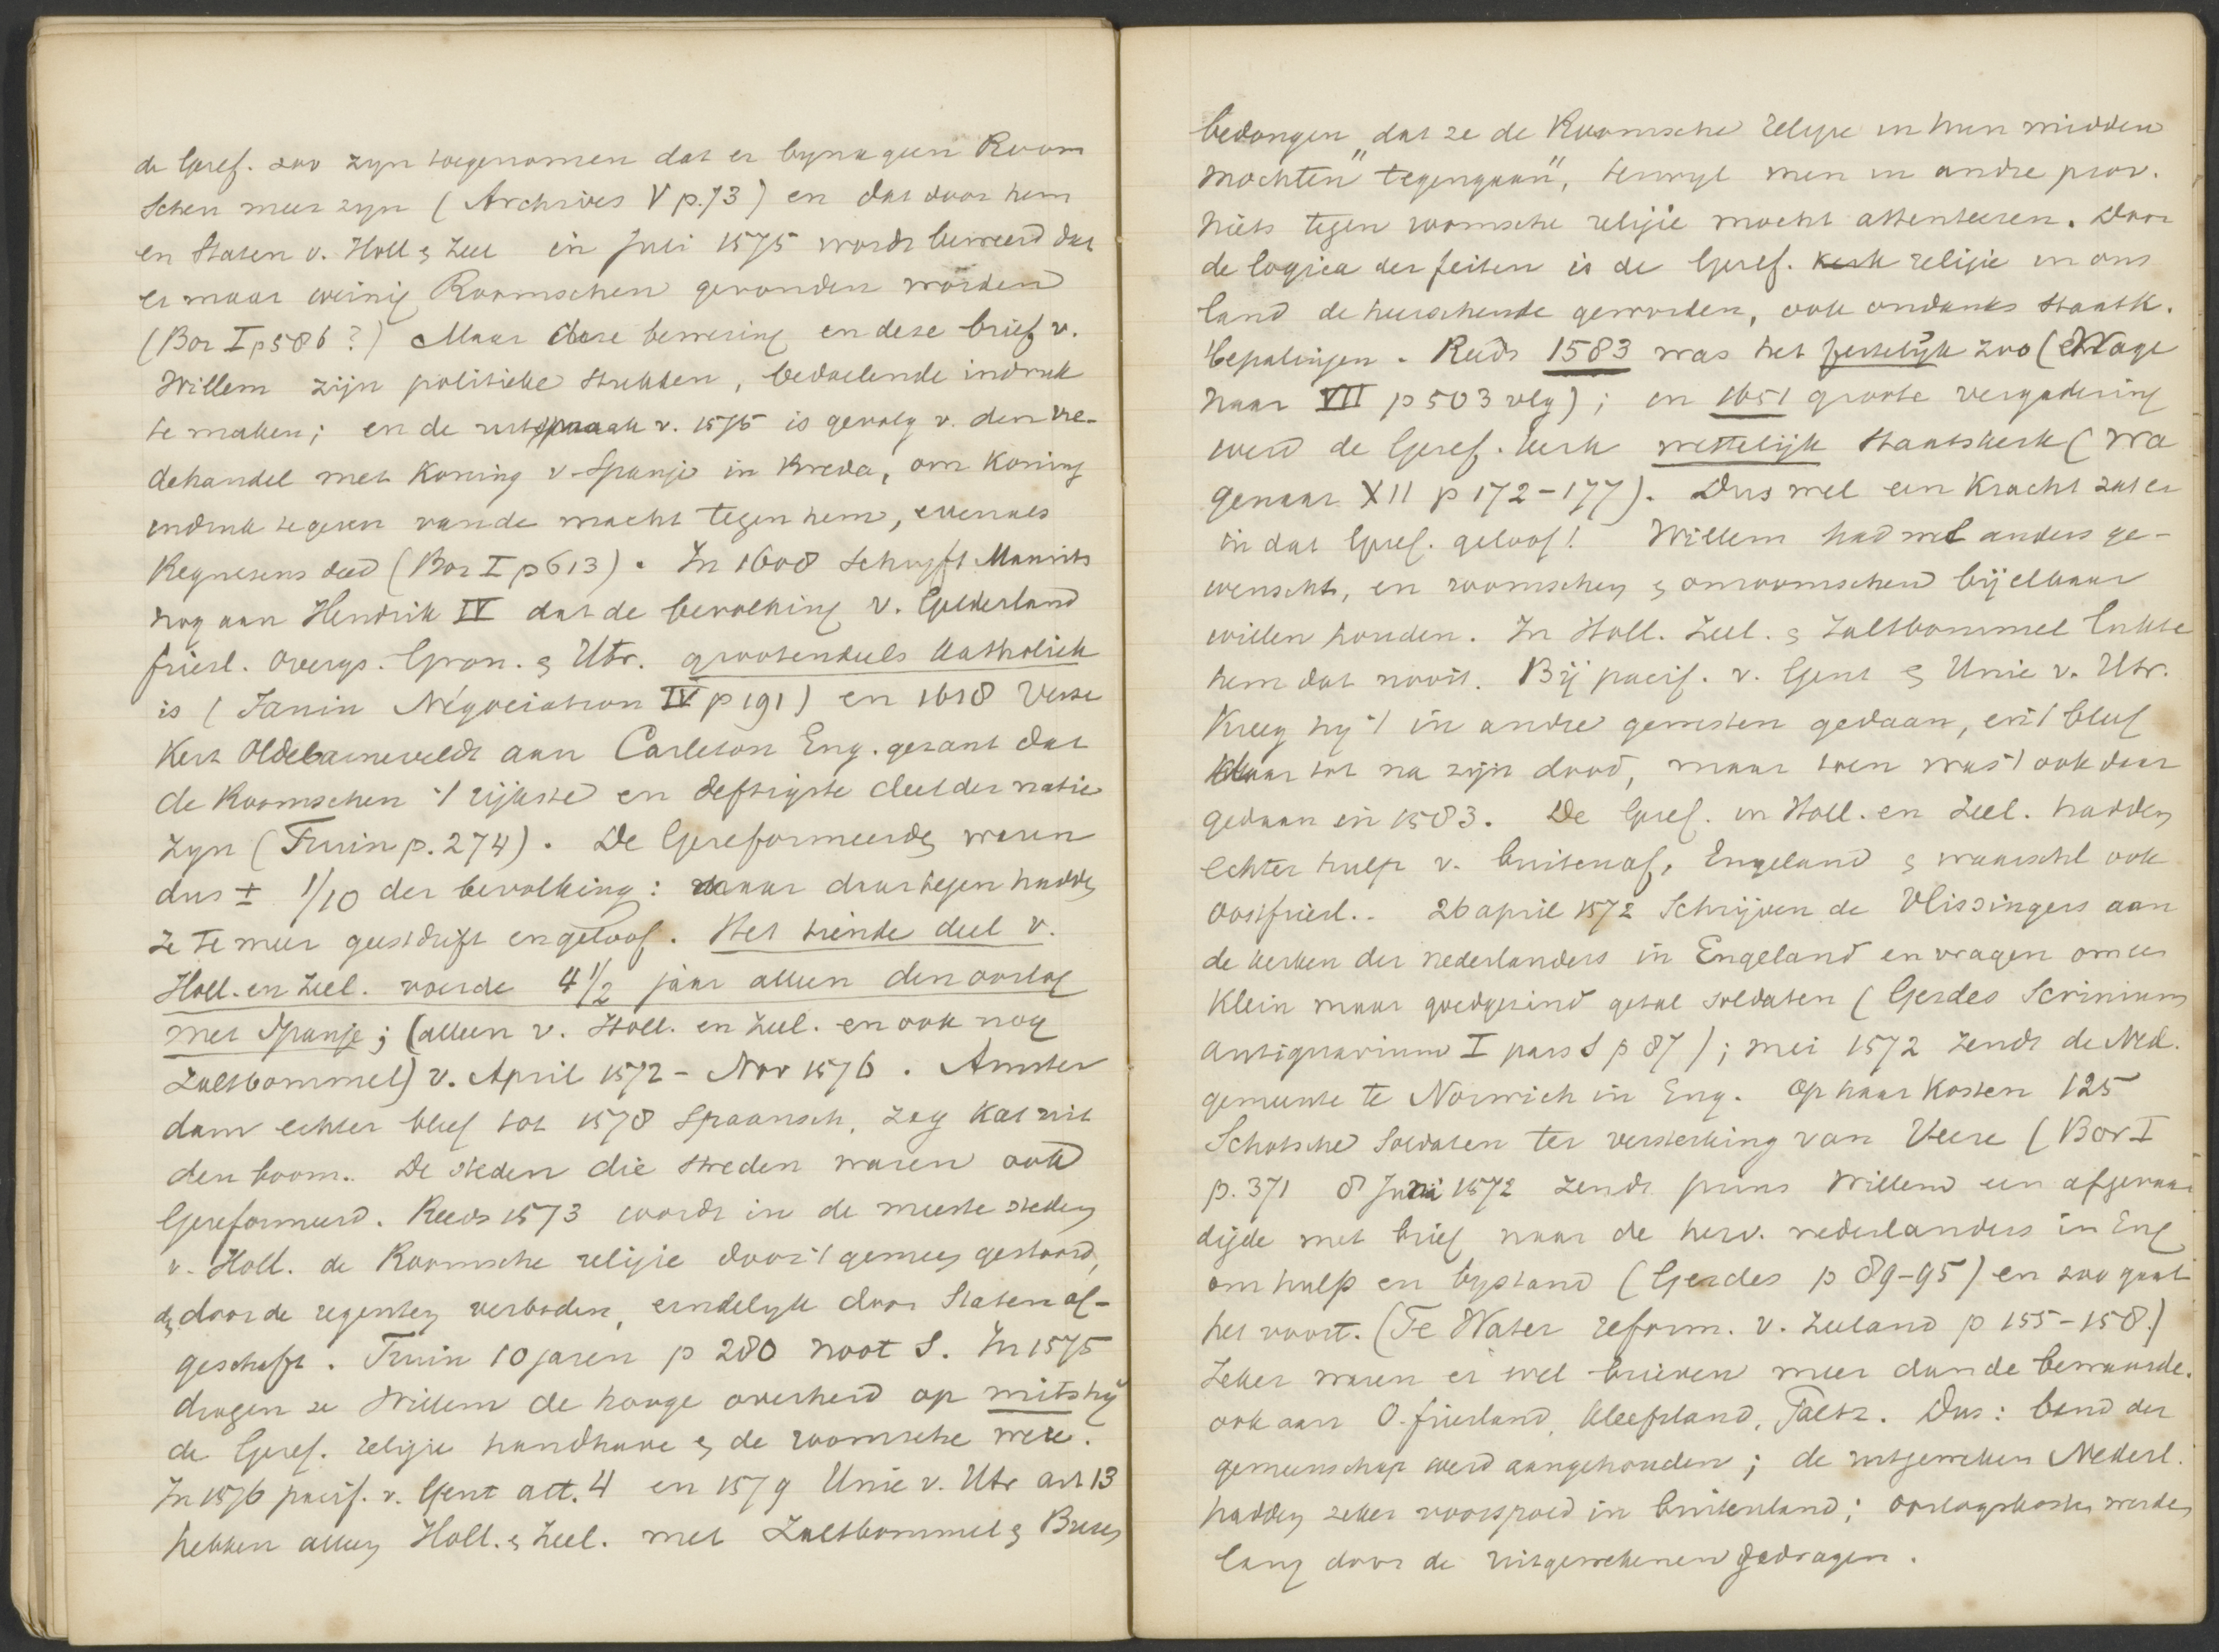 de Geref. zoo zyn toegenomen dat er byna geen Room
schen meer zyn (Archives V p. 73) en dat door hem
en Staten v. Holl & Zeel in Juli 1575 wordt beweerd dat
er maar weinig Roomschen gevonden worden
(Bor I p 586?) Maar deze bewering en deze brief v.
Willem zijn politieke stukken, bedoelende indruk
te maken; en de uitspraak v. 1575 is gevolg v. den vre-
dehandel met Koning v. Spanje in Breda, om Koning
indruk te geven van de macht tegen hem, evenals
Requesens deed (Bor I p 613). In 1608 schryft Maurits
nog aan Hendrik IV dat de bevolking v. Gelderland
friesl. Overijs. Gron. & Utr. grootendeels katholiek
is (Janin Négociation IV p 191) en 1618 verze
kert Oldebarneveldt aan Carleton Eng. gezant dat
de Roomschen 't rijkste en deftigste deel der natie
zyn (Fruin p. 274). De Gereformeerden waren
dus ± 1/10 der bevolking: maar daartegen hadden
ze te meer geestdrift en geloof. Het tiende deel v.
Holl. en Zeel. voerde 4 1/2 jaar alleen den oorlog
met Spanje; (alleen v. Holl. en Zeel. en ook nog
Zaltbommel) v. April 1572 - Nov 1576. Amster
dam echter bleef tot 1578 Spaansch, zag kat uit
den boom. De steden die streden waren ook
Gereformeerd. Reeds 1573 wordt in de meeste steden
v. Holl. de Roomsche religie door 't gemeen gestoord,
& door de regenten verboden, eindelyk door Staten af-
geschaft. Fruin 10 jaren p 280 noot S. In 1575
dragen ze Willem de hooge overheid op mits hij
de Geref. religie handhave & de roomsche were.
In 1576 pacif. v. Gent art. 4 en 1579 Unie v. Utr art 13
hebben alleen Holl. & Zeel. met Zaltbommel & Buren
bedongen „dat ze de Roomsche religie in hun midden
mochten" tegengaan", terwyl men in andre prov.
niets tegen roomsche religie mocht attenteeren. Door
de logica der feiten is de Geref. kerk religie in ons
land de heerschende geworden, ook ondanks staatk.
bepalingen. Reeds 1583 was het feitelijk zoo (Wage
naar VII p 503 vlg); en 1651 groote vergadering
werd de Geref. kerk wettelijk Staatskerk (Wa
genaar XII p 172-177). Dus wel een kracht zat er
in dat Geref. geloof! Willem had wel anders ge-
wenscht, en roomschen & onroomschen bij elkaar
willen houden. In Holl. Zeel. & Zaltbommel lukte
hem dat nooit. Bij pacif. v. Gent & Unie v. Utr.
kreeg hy 't in andre gewesten gedaan, en 't bleef
daar tot na zijn dood, maar toen was 't ook daar
gedaan in 1583. De Geref. in Holl. en Zeel. hadden
echter hulp v. buitenaf, Engeland & waarschl ook
Oostfriesl.. 26 april 1572 schrijven de Vlissingers aan
de kerken der nederlanders in Engeland en vragen om een
klein maar goedgezind getal soldaten (Gerdes Scrinium
antiquarium I pars I p 87); mei 1572 zendt de Ned.
gemeente te Norwich in Eng. op haar kosten 125
Schotsche soldaten ter versterking van Veere (Bor I
p. 371 8 Juni 1572 zendt prins Willem een afgevaar
digde met brief naar de herv. nederlanders in Eng
om hulp en bystand (Gerdes p 89-95) en zoo gaat
het voort. (Te Water reform. v. Zeeland p 155-158.)
Zeker waren er wel brieven meer dan de bewaarde.
ook aan O.friesland, Kleefsland, Paltz. Dus: band der
gemeenschap werd aangehouden; de uitgeweken Nederl.
hadden zeker voorspoed in buitenland; oorlogskosten werden
lang door de uitgewekenen gedragen.